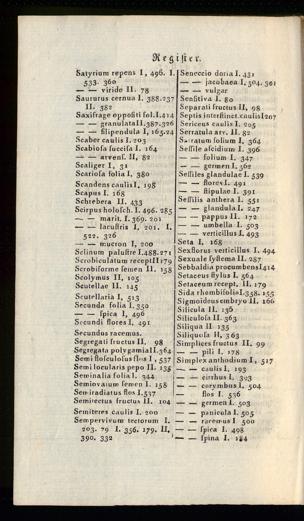 Register.
Satyrium repens I, 496. I.
533. 360
— — viride II. 78
Saururus cernua I. 388.237
II. 382
Saxifrage oppositi fol.I.414
— — granulataII.387.326
— — filipendula I, 165.24
Scaber caulis I. 203
Scabiosa succisa I. 164
— — arvens. II, 82
Scaliger I, 31
Scariosa folia I, 380
Scandens caulis I, 198
Scapus I. 168
Schrebera II. 433
Scirpus holosch. I. 496. 285
— — marit. I. 369. 201
— — lacustris I, 201. I.
522. 326
— — mucron I, 200
Sclinum palustre I.488.271
Scrobiculatum receptII179
Scrobiforme semen II. 158
Scolymus II, 105
Scutellae II. 145
Scutellaria I, 513
Secunda folia I. 350
— — spica I, 496
Secundi flores I, 491
Secundus racemus.
Segregati fructus II, 98
Segregata polygamiaII.364
Semi flosculosus flos I. 537
Semi locularis pepo II. 135
Seminalia folia I. 344
Semiovatum semen I. 158
Semiradiatus flos I.537
Semirectus fructus II. 104
Semiteres caulis I. 200
Sempervivum tectorum I.
203. 79 I. 356. 179. II,
390. 332
Seneccio doria I. 431
— — jacobaea I. 504. 561
— — vulgar
Sensitiva I. 80
Separati fructus II, 98
Septis interstinct.caulisI207
Sericeus caulis I. 205
Serratula arv. II. 82
Serratum folium I, 364
Sessile afcidium I. 396
— — folium I. 347
— — germen I, 562
Sessiles glandulae I. 539
— — flores I. 491
— — stipulae I. 391
Sessilis anthera I. 551
— — glandula I. 247
— — pappus II. 172
— — umbella I. 503
— — verticillus I, 493
Seta I, 168
Sexflorus verticillus I, 494
Sexuale systema II. 287
Sebbaldia procumbensI414
Setaceus stylus I. 564
Setaceum recept, II. 179
Sida rhombifoliaI.358.155
Sigmoideus embryo II. 166
Silicula II. 136
Siliculosa II. 363
Siliqua II 135
Siliquosa II, 363
Simplices fructus II. 99
— — pili I. 178
Simplex anthodium I, 517
— — caulis I, 193
— — cirrhus I, 393
— — corymbus I, 504
— — flos I. 536
— — germen I. 503
— — panicula I. 505
— — racemus I. 500
— — spica I. 498
— — spina I. 184